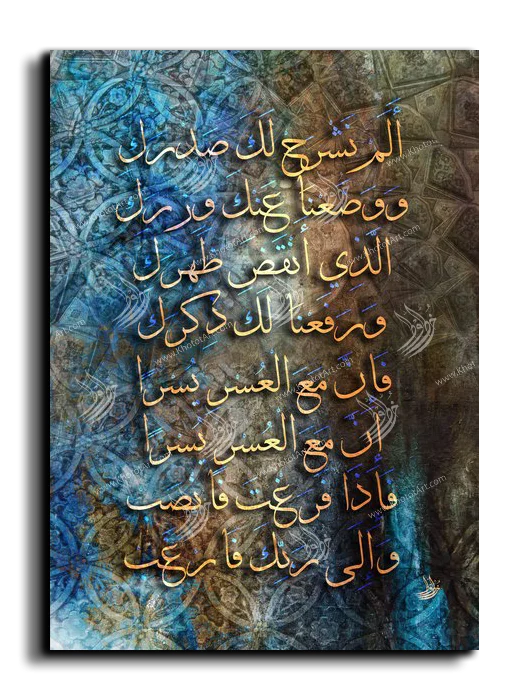 أَلَم نَشرَح لَكَ صَدرَك
وَوَضَعنا عَنكَ وِزرَك
الَّذي أَنقَضَ ظَهرَك
وَرَفَعنا لَكَ ذِكرَك
فَإِنَّ مَعَ العُسرِ يُسرًا
إِنَّ مَعَ العُسرِ يُسرًا
فَإِذا فَرَغتَ فَانصَب
وَإِلى رَبِّكَ فَارغَب
www.KhototArt.com